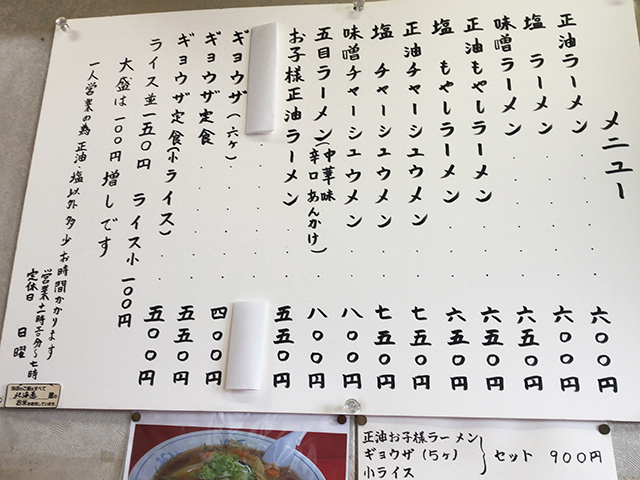 メニュー
正油ラーメン・・・・六〇〇円
塩ラーメン・・・・六〇〇円
味噌ラーメン・・・・六五〇円
正油もやしラーメン・・・六五〇円
塩もやしラーメン・・・六五〇円
正油チャーシュウメン・・七五〇円
塩チャーシュウメン・・七五〇円
味噌チャーシュウメン・・八〇〇円
五目ラーメン(中華味 辛口あんかけ)・八〇〇円
お子様正油ラーメン・・・五五〇円
ギョウザ(六ヶ)・・・・四〇〇円
ギョウザ定食・・・・五五〇円
ギョウザ定食(小ライス)・・五〇〇円
ライス並一五〇円 ライス小一〇〇円
大盛は一〇〇円増しです
一人営業の為正油・塩以外多少お時間かかります
営業十一時〇分〜七時
定休日 日曜
当店のご飯はすべて
北海道 産の
お米を使用しています。
正油お子様ラーメン
ギョウザ(5ヶ)
小ライス
セット 900円